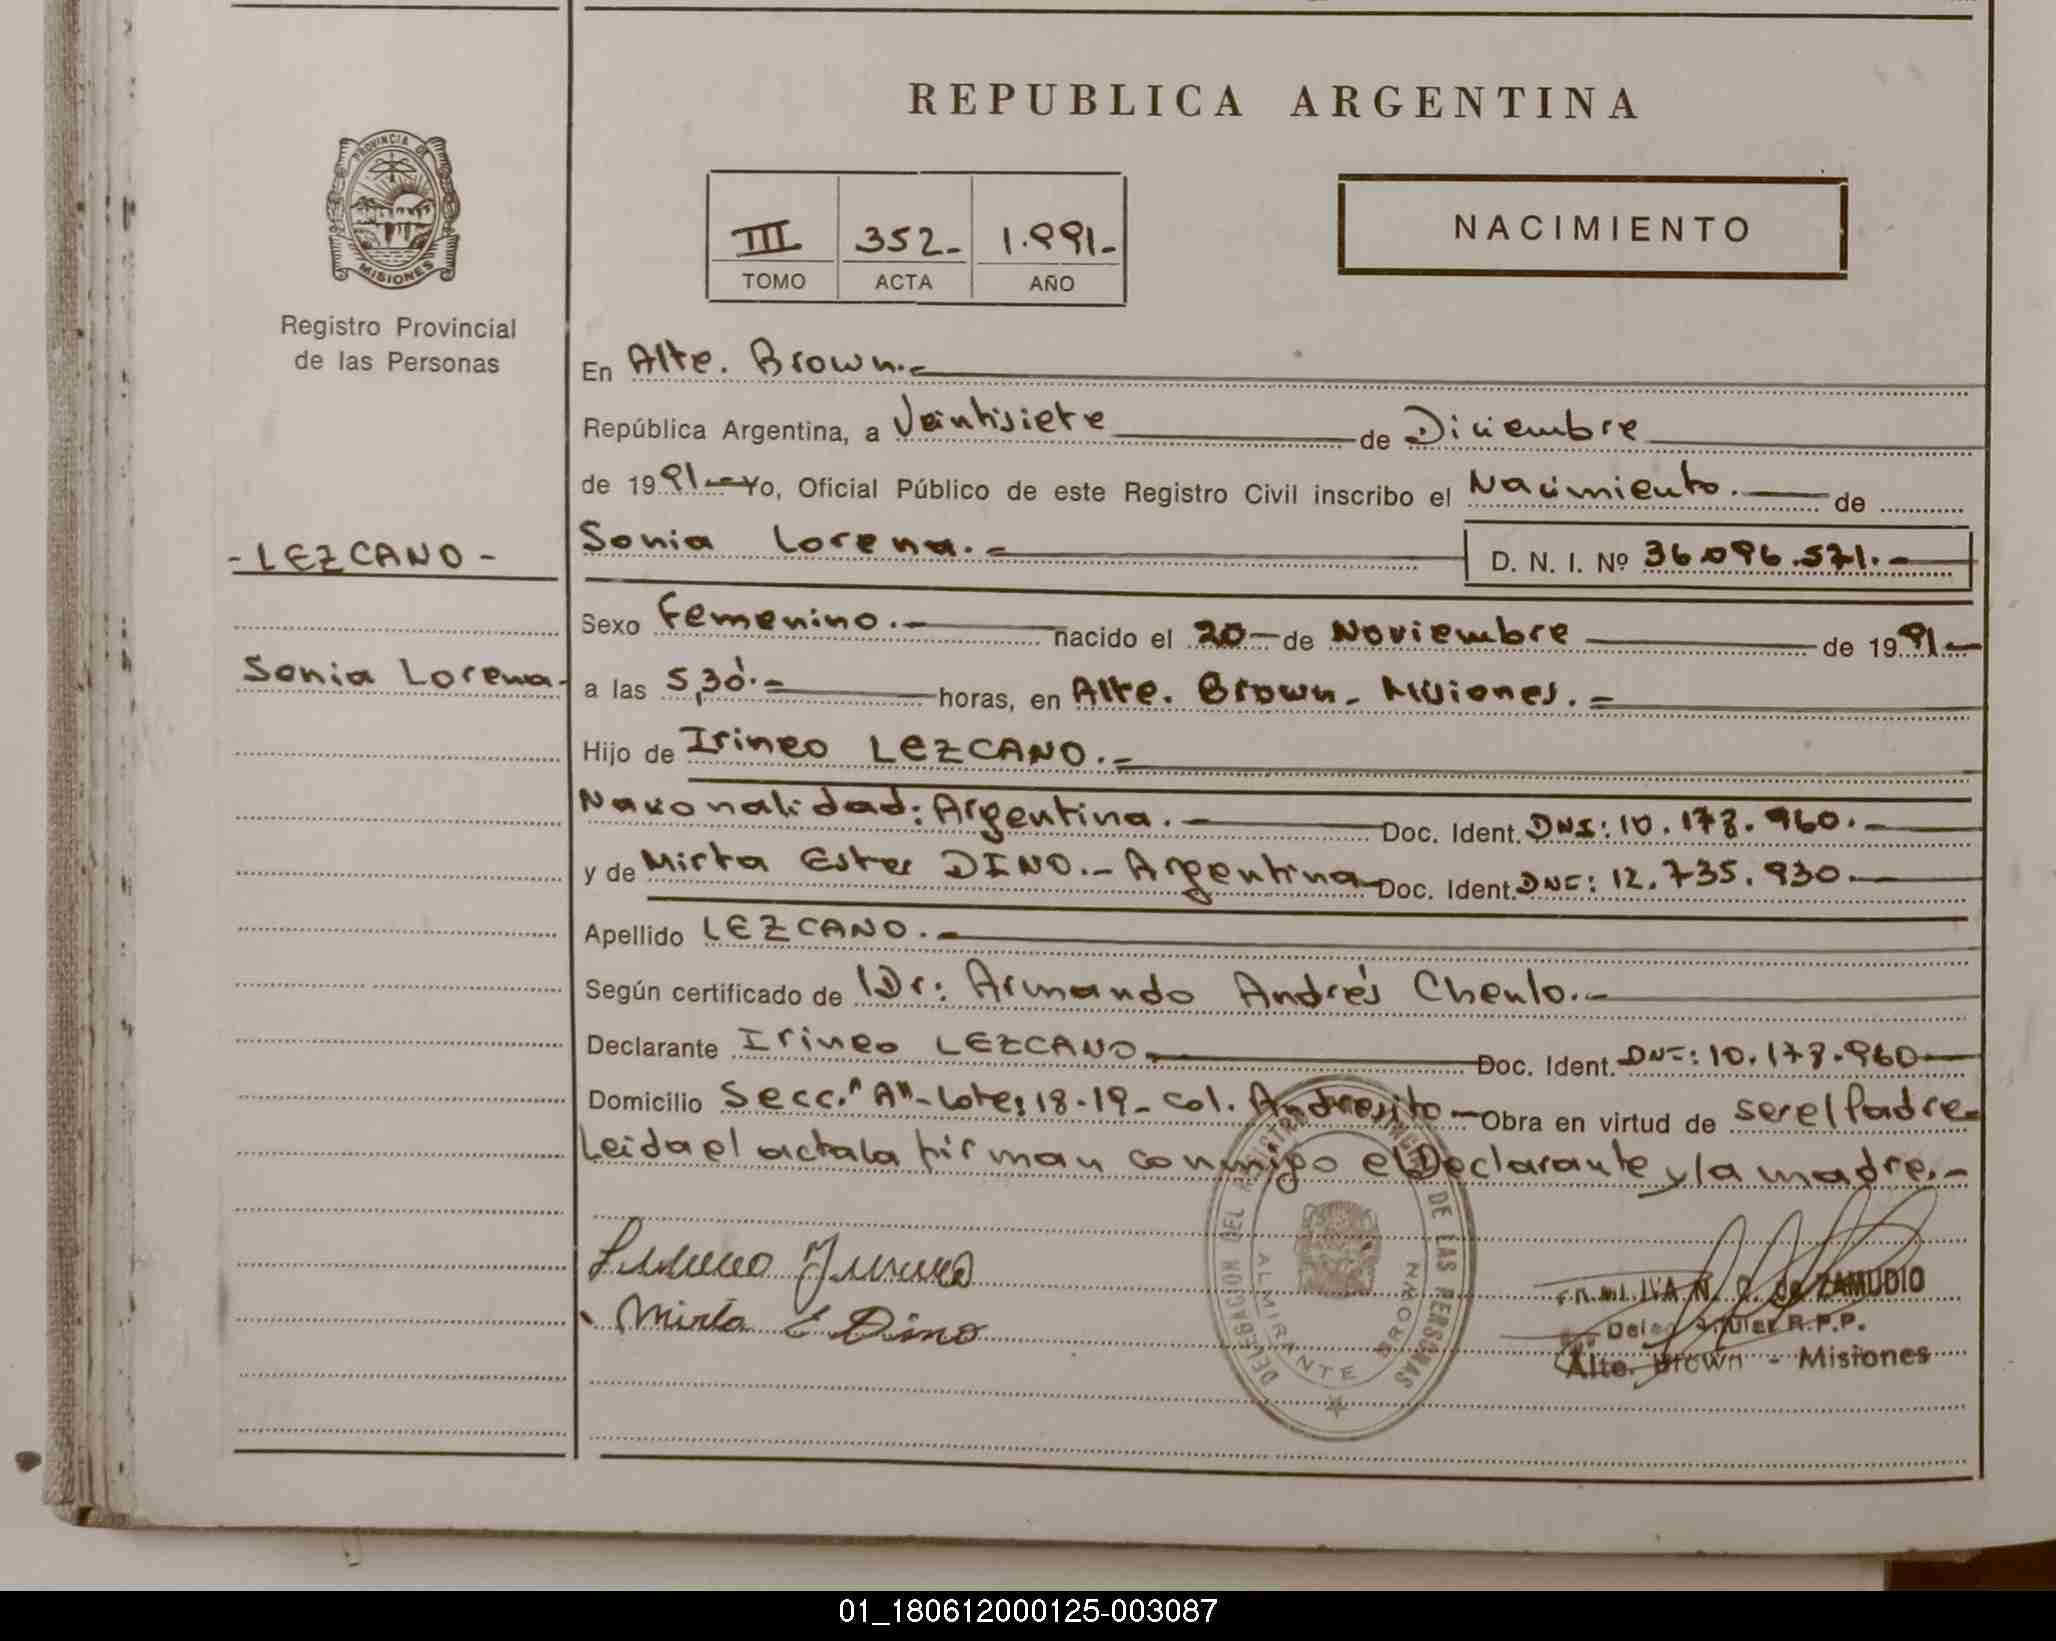 REPUBLICA ARGENTINA
PROVINCIA DE
MISIONES
Registro Provincial
de las Personas
III 352- 1.991-
TOMO ACTA AÑO
NACIMIENTO
En Alte. Brown.-
República Argentina, a Veintisiete de Diciembre
de 1991.- Yo, Oficial Público de este Registro Civil inscribo el Nacimiento.- de
- LEZCANO -
Sonia Lorena.- D. N. I. Nº 36.096.571.-
Sexo Femenino.- nacido el 20- de Noviembre de 1991-
Sonia Lorena-
a las 5,30'.- horas, en Alte. Brown- Misiones.-
Hijo de Irineo LEZCANO.-
Nacionalidad: Argentina.- Doc. Ident. DNI: 10.178.960.-
y de Mirta Ester DINO.- Argentina- Doc. Ident. DNI: 12.735.930.-
Apellido LEZCANO.-
Según certificado de Dr: Armando Andrés Chenlo.-
Declarante Irineo LEZCANO Doc. Ident. DNI: 10.178.960-
Domicilio Secc. "A"- Lotes 18-19- Col. Andresito- Obra en virtud de ser el Padre-
Leida el acta la firman conmigo el Declarante y la madre.-
DELEGACION DEL REGISTRO PROVINCIAL DE LAS PERSONAS
ALMIRANTE BROWN
Mirta E Dino
N. C. de ZAMUDIO
R.P.P.
Alte. Brown - Misiones
01_180612000125-003087